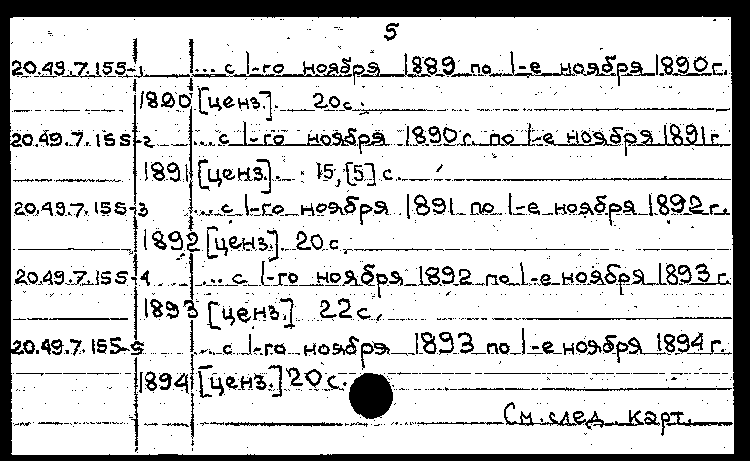 5
20.49.7.155-1 ... с 1-го ноября 1889 по 1-е ноября 1890г.
1890 [ценз.]. 20с.
20.49.7.155-2 ... с 1-го ноября 1890г. по 1-е ноября 1891г
1891 [ценз.]. 15,[5] с.
20.49.7.155-3 ... с 1-го ноября 1891 по 1-е ноября 1892г.
1892 [ценз.]. 20с.
20.49.7.155-4 ... с 1-го ноября 1892 по 1-е ноября 1893г.
1893 [ценз.] 22с.
20.49.7.155-5 ... с 1-го ноября 1893 по 1-е ноября 1894г.
1894 [ценз.] 20с.
См. след. карт.